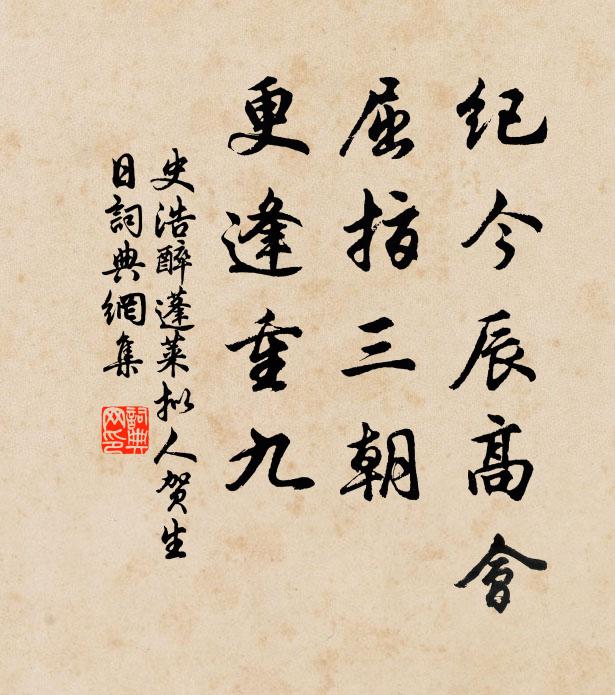 紀今辰高會
屈指三朝
更逢重九
史浩醉蓬萊拟人贺生
日詞典網集
詞典
网印